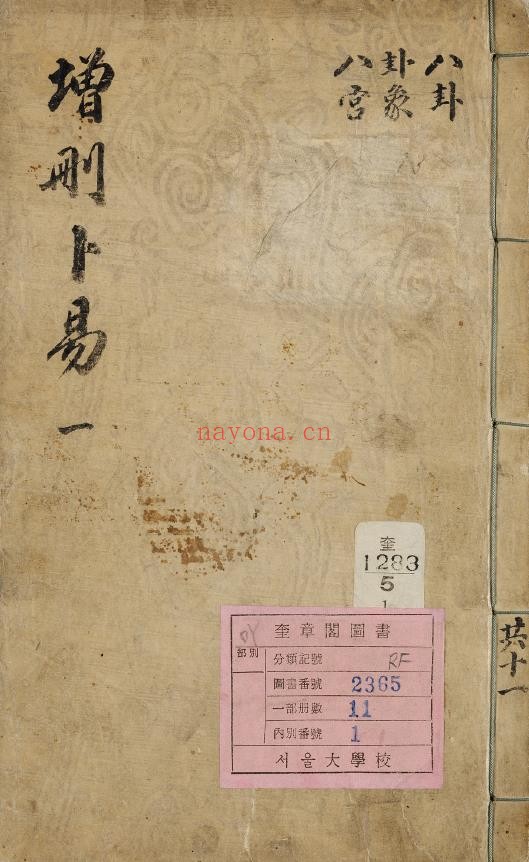 八卦
卦象
八宮
增刪卜易 一
nayona.cn
奎
1283
5
1
共十一
奎章閣圖書
部別
分類記號 RF
圖書番號 2365
一部冊數 11
內別番號 1
서울大學校